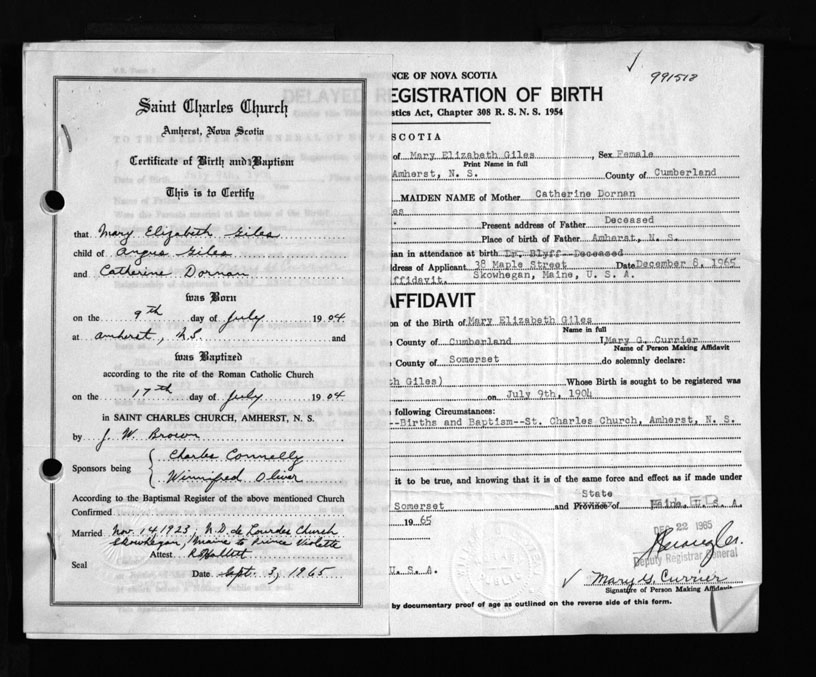 Saint Charles Church
Amherst, Nova Scotia
Certificate of Birth and Baptism
This is to Certify
that Mary Elizabeth Giles
child of Angus Giles
and Catherine Dornan
was Born
on the 9th day of July 1904
at Amherst, N.S. and
was Baptized
according to the rite of the Roman Catholic Church
on the 17th day of July 1904
in SAINT CHARLES CHURCH, AMHERST, N. S.
by J. W. Brown
Sponsors being { Charles Connelly
Winnifred Oliver
According to the Baptismal Register of the above mentioned Church
Confirmed
Married Nov. 14, 1923, N.D. de Lourdes Church
Skowhegan, Maine to Prince Violette
Attest
Seal
Date Sept. 3, 1965
991512
NCE OF NOVA SCOTIA
DELAYED R
EGISTRATION OF BIRTH
stics Act, Chapter 308 R. S. N. S. 1954
SCOTIA
of Mary Elizabeth Giles Sex Female
Print Name in full
Amherst, N. S. County of Cumberland
MAIDEN NAME of Mother Catherine Dornan
es
Present address of Father Deceased
Place of birth of Father Amherst, N. S.
ian in attendance at birth Dr. Blyff--Deceased
ddress of Applicant 38 Maple Street Date December 8, 1965
ffidavit. Skowhegan, Maine, U. S. A.
AFFIDAVIT
on of the Birth of Mary Elizabeth Giles
Name in full
County of Cumberland I Mary G. Currier
Name of Person Making Affidavit
County of Somerset do solemnly declare:
th Giles) Whose Birth is sought to be registered was
on July 9th, 1904
following Circumstances:
--Births and Baptism--St. Charles Church, Amherst, N. S.
it to be true, and knowing that it is of the same force and effect as if made under
State
Somerset and Province of Maine, U. S. A.
1965
DEC 22 1965
Deputy Registrar General
U. S. A.
Mary G. Currier
Signature of Person Making Affidavit
by documentary proof of age as outlined on the reverse side of this form.